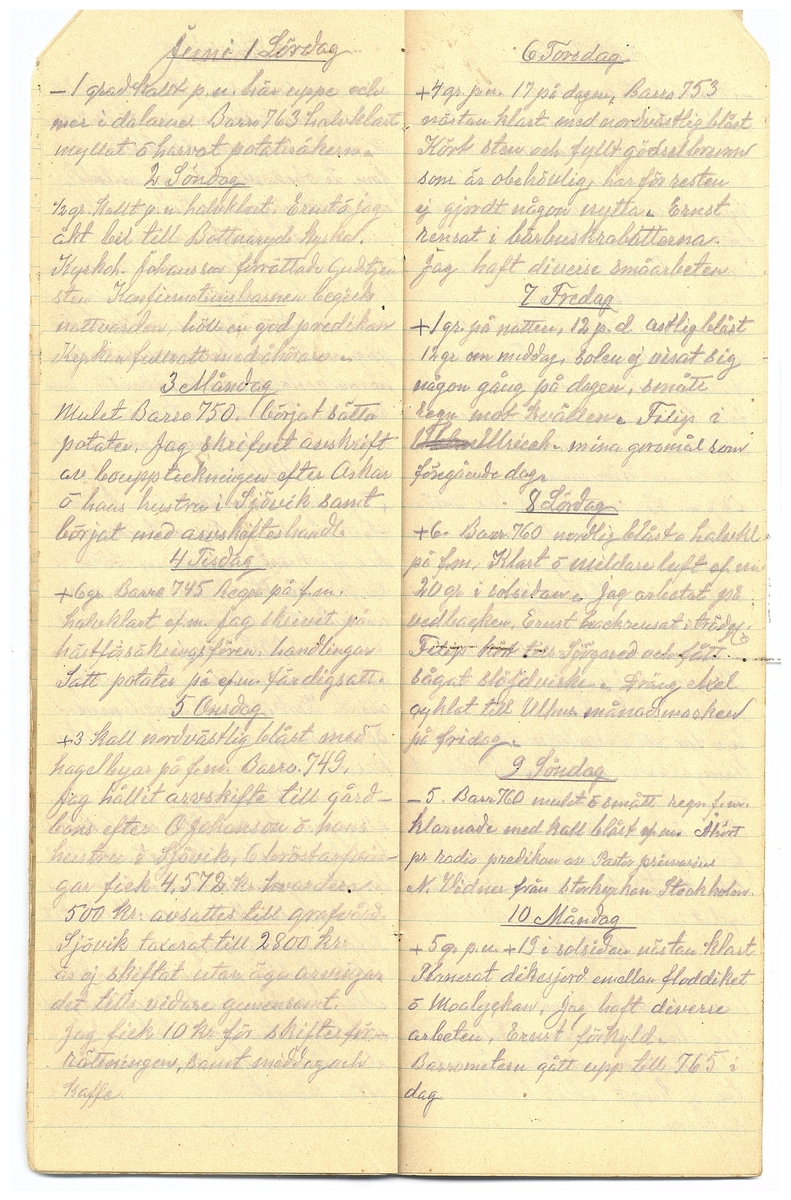 Juni 1 Lördag
- 1 grad kallt p.n. här uppe och
mer i dalarne. Barro 763 halvklart
myllat o harvat potatisåkern.
2 Söndag
1/2 gr. kallt p.n. halvklart. Ernst o jag
åkt bil till Bottnaryds kyrka.
Kyrkoh. Johansson förrättade Gudstjen
sten Konfirmationsbarnen begick
nattvarden, höll en god predikan
Kyrkan fullsatt med åhörare.
3 Måndag
Mulet Barro 750. börjat sätta
potater. Jag skrifvit avskrift
av bouppteckningen efter Oskar
o hans hustru i Sjövik samt
börjat med arvskifteshandl.
4 Tisdag
+6 gr Barro 745 Regn på f.m.
halvklart e.m. Jag skrivit på
hästförsäkringsfören. handlingar
Satt potater på e.m. färdigsatt.
5 Onsdag
+3 kall nordvästlig blåst med
hagelbyar på f.m. Barro. 749.
Jag hållit arvskifte till gård-
bons efter O Johansson o hans
hustru i Sjövik, 6 bröstarfvin-
gar fick 4,572 kr hvardera.
500 kr. avsattes till grafvård.
Sjövik taxerat till 2800 kr.
är ej skiftat utan äga arvingar
det tills vidare gemensamt.
Jag fick 10 kr för skifteför-
rättningen, samt middag och
kaffe.
6 Torsdag
+4 gr. p.n. 17 på dagen, Barro 753
nästan klart med nordvästlig blåst
Kört sten och fyllt gödselbrunn
som är obehövlig, har för resten
ej gjordt någon nytta. Ernst
rensat i bärbuskrabatterna.
Jag haft diverse småarbeten
7 Fredag
+1 gr. på natten, 12 p.d. ostlig blåst
12 gr om middag, solen ej visat sig
någon gång på dagen, smått
regn mot kvällen. Filip i
Ullrich. mina göromål som
föregående dag.
8 Lördag
+6. Barr 760 nordlig blåst o halvkl.
på f.m. Klart o mildare luft ef.m.
20 gr i solsidan. Jag arbetat på
vedbacken, Ernst backrensat i trädg.
Filip kört till Sjögared och fått
sågat slöjdvirke. Dräng Axel
cyklat till Ulhus månadsmarken
på fridag.
9 Söndag
- 5. Barr 760 mulet o smått regn f.m.
klarnade med kall blåst ef.m. Åhört
pr radio predikan av Pastor primarius
N. Vidner från storkyrkan Stockholm.
10 Måndag
+ 5 gr p.n. + 19 i solsidan nästan klart
Planerat dikesjord emellan floddiket
o Moalyckan, Jag haft diverse
arbeten, Ernst förkyld.
Barrometern gått upp till 765 i
dag